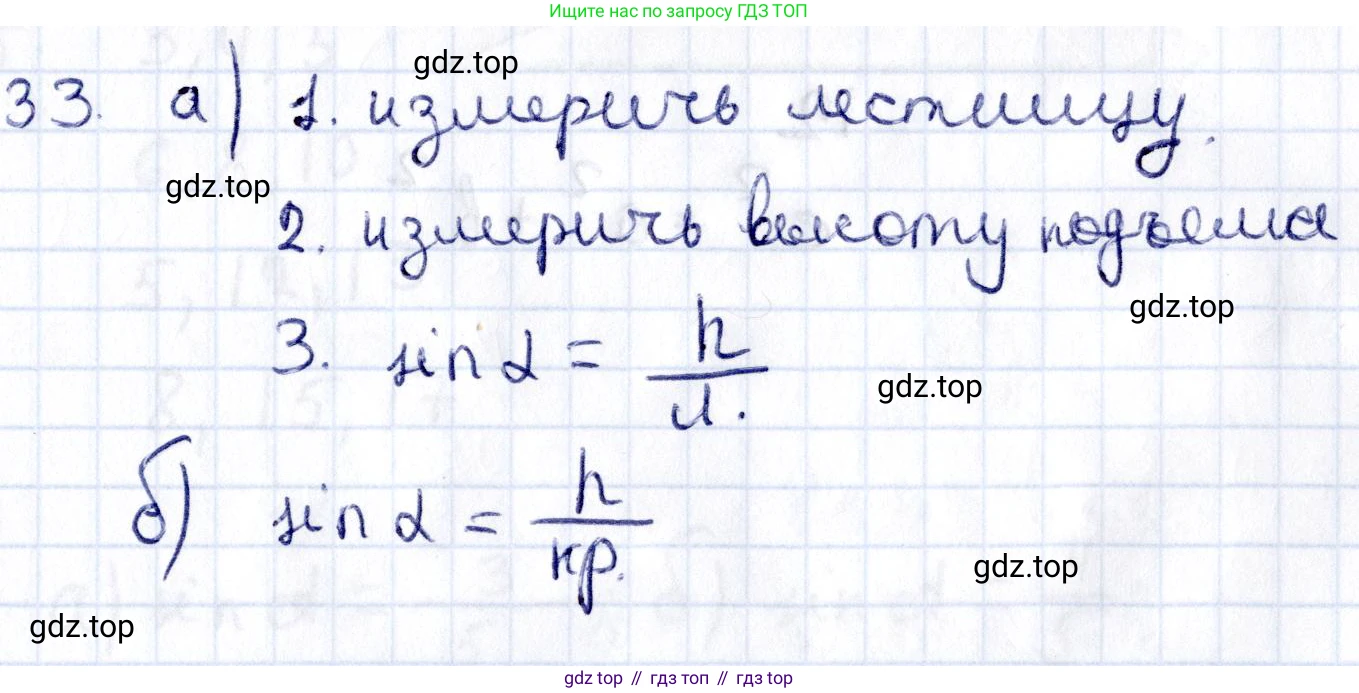 Ищите нас по запросу ГДЗ ТОП
gdz.top
33. а) 1. измерить лестницу.
gdz.top
2. измерить высоту подъема
gdz.top
3. sin α = h / л.
gdz.top
б) sin α = h / кр.
gdz.top
gdz.top
gdz top // гдз топ // гдз top